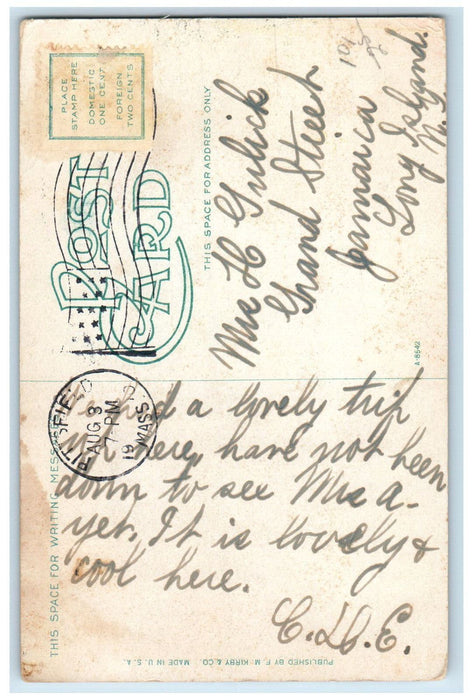 PLACE
STAMP HERE
DOMESTIC
ONE CENT
FOREIGN
TWO CENTS
POST
CARD
THIS SPACE FOR ADDRESS ONLY
Mrs H Gulick
Grand Street
Jamaica
Long Island.
N.Y.
A-8542
PITTSFIELD
AUG 3
7 PM
19
MASS.
THIS SPACE FOR WRITING MESSAGES
had a lovely trip
up here, have not been
down to see Mrs A-
yet. It is lovely &
cool here.
C.D.E.
PUBLISHED BY F. M. KIRBY & CO. MADE IN U.S.A.